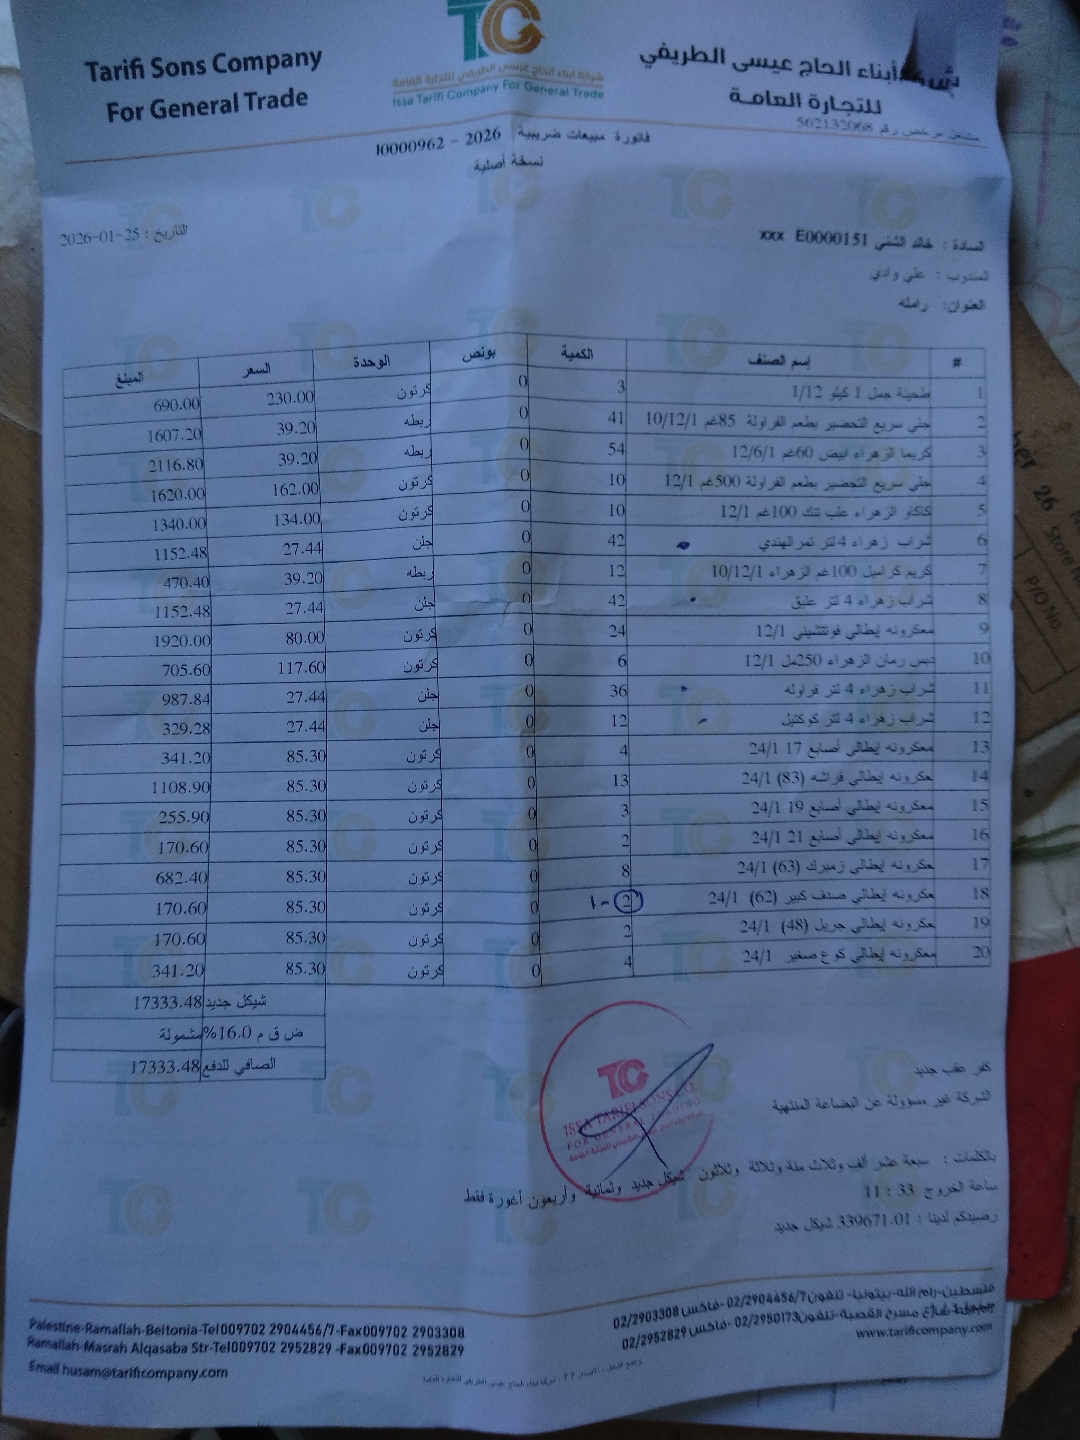 Tarifi Sons Company
For General Trade
TC
شركة ابناء الحاج عيسى الطريفي للتجارة العامة
Issa Tarifi Company For General Trade
أبناء الحاج عيسى الطريفي
للتجارة العامة
مشتغل مرخص رقم 562132068
فاتورة مبيعات ضريبية 2026 - 10000962
نسخة أصلية
التاريخ : 25-01-2026
السادة : خالد الشني E0000151 xxx
المندوب : علي وادي
العنوان: رامله
# إسم الصنف الكمية بونص الوحدة السعر المبلغ
1 طحينة جمل 1 كيلو 1/12 3 0 كرتون 230.00 690.00
2 جلي سريع التحضير بطعم الفراولة 85غم 10/12/1 41 0 ربطه 39.20 1607.20
3 كريما الزهراء ابيض 60غم 12/6/1 54 0 ربطه 39.20 2116.80
4 جلي سريع التحضير بطعم الفراولة 500غم 12/1 10 0 كرتون 162.00 1620.00
5 كاكاو الزهراء علب تنك 100غم 12/1 10 0 كرتون 134.00 1340.00
6 شراب زهراء 4 لتر تمرالهندي 42 0 جلن 27.44 1152.48
7 كريم كراميل 100غم الزهراء 10/12/1 12 0 ربطه 39.20 470.40
8 شراب زهراء 4 لتر عليق 42 0 جلن 27.44 1152.48
9 معكرونه إيطالي فوتتشيني 12/1 24 0 كرتون 80.00 1920.00
10 دبس رمان الزهراء 250مل 12/1 6 0 كرتون 117.60 705.60
11 شراب زهراء 4 لتر فراوله 36 0 جلن 27.44 987.84
12 شراب زهراء 4 لتر كوكتيل 12 0 جلن 27.44 329.28
13 معكرونه إيطالي أصابع 17 24/1 4 0 كرتون 85.30 341.20
14 عكرونه إيطالي فراشه (83) 24/1 13 0 كرتون 85.30 1108.90
15 معكرونه إيطالي أصابع 19 24/1 3 0 كرتون 85.30 255.90
16 معكرونه إيطالي أصابع 21 24/1 2 0 كرتون 85.30 170.60
17 عكرونه إيطالي زمبرك (63) 24/1 8 0 كرتون 85.30 682.40
18 عكرونه إيطالي صدف كبير (62) 24/1 2 1- 0 كرتون 85.30 170.60
19 عكرونه إيطالي جريل (48) 24/1 2 0 كرتون 85.30 170.60
20 معكرونه إيطالي كوع صغير 24/1 4 0 كرتون 85.30 341.20
شيكل جديد 17333.48
ض ق م 16.0% مشمولة
الصافي للدفع 17333.48
TC
ISSA TARIFI SONS CO.
FOR GENERAL TRADING
كفر عقب جديد
الشركة غير مسؤولة عن البضاعة المنتهية
بالكلمات : سبعة عشر ألف وثلاث مئة وثلاثة وثلاثون شيكل جديد وثمانية وأربعون أغورة فقط
ساعة الخروج 33 : 11
رصيدكم لدينا : 339671.01 شيكل جديد
Palestine-Ramallah-Beitonia-Tel009702 2904456/7-Fax009702 2903308
Ramallah-Masrah Alqasaba Str-Tel009702 2952829 -Fax009702 2952829
Email husam@tarificompany.com
فلسطين-رام الله-بيتونيا- تلفون02/2904456/7 -فاكس 02/2903308
شارع مسرح القصبة-تلفون02/2950173 -فاكس 02/2952829
www.tarificompany.com
ber 26
Store N
P/O No.